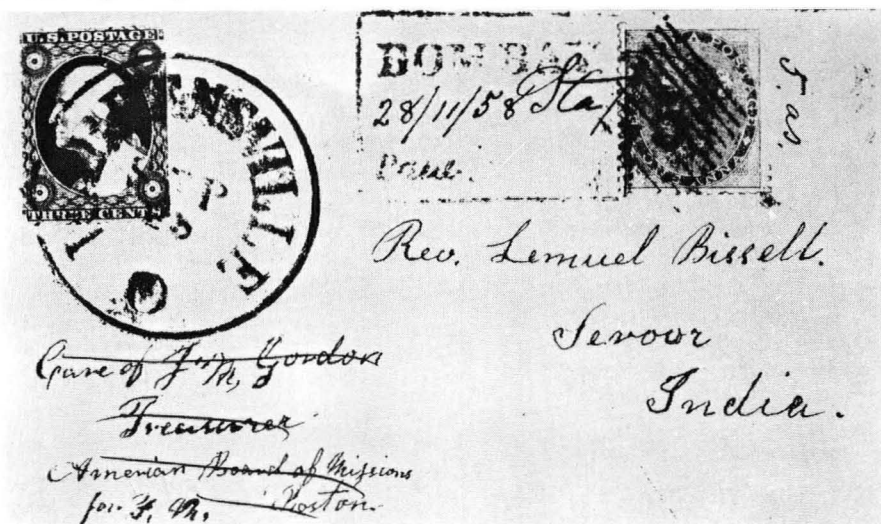 U.S. POSTAGE
THREE CENTS
NSVILLE
BOMBAY
28/11/58
Paid.
5 as.
Rev. Lemuel Bissell.
Serour
India.
Care of Gordon
Treasurer
Amerian Board of Missions
for F. M. Boston.